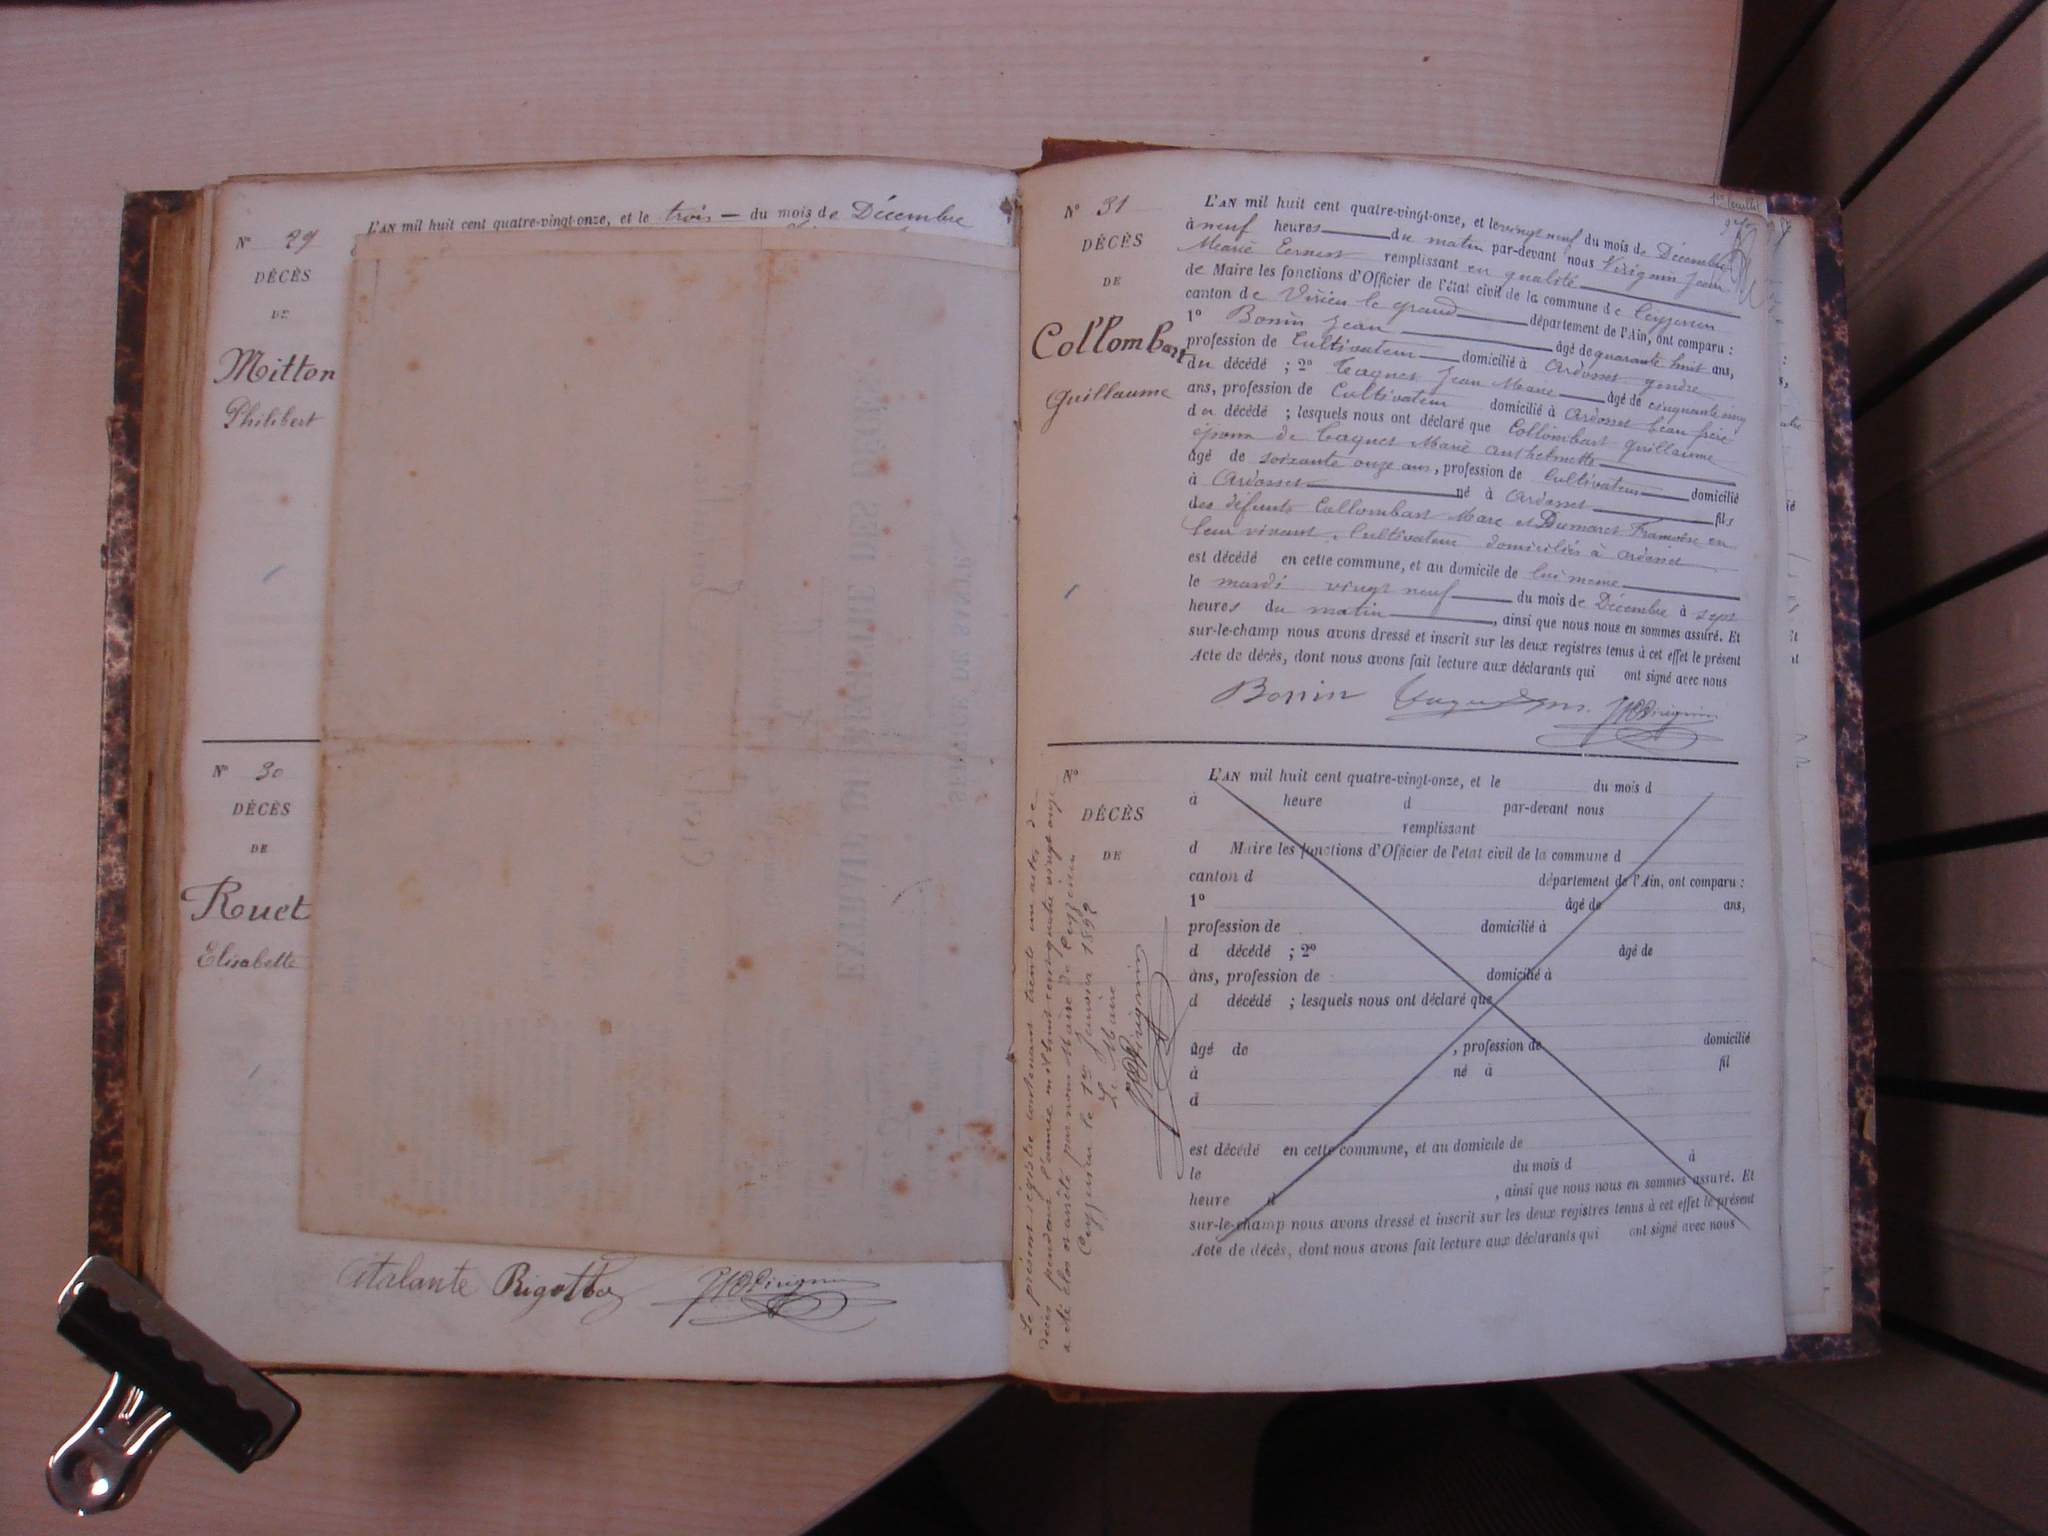 L'AN mil huit cent quatre-vingt-onze, et le trois du mois de Décembre
N° 29
DÉCÈS
DE
Mitton
Philibert
N° 30
DÉCÈS
DE
Ruet
Elisabette
Atalante Rigottaz JMEVirignin
N° 31
DÉCÈS
DE
Collombart
Guillaume
L'AN mil huit cent quatre-vingt-onze, et le vingt neuf du mois de Décembre
à neuf heures du matin par-devant nous Virignin Jean
Marie Ernest remplissant en qualité
de Maire les fonctions d'Officier de l'état civil de la commune de Ceyzerieu
canton de Virieu le grand département de l'Ain, ont comparu :
1° Bonin Jean âgé de quarante huit ans,
profession de Cultivateur domicilié à Ardosset gendre
du décédé ; 2° Taguet Jean Marie âgé de cinquante cinq
ans, profession de Cultivateur domicilié à Ardosset beau frère
du décédé ; lesquels nous ont déclaré que Collombart Guillaume
époux de Taguet Marie Anthelmette
âgé de soixante onze ans, profession de Cultivateur domicilié
à Ardosset né à Ardosset fils
des défunts Collombart Marc et Dumaret Françoise en
leur vivant, Cultivateurs domiciliés à Ardosset
est décédé en cette commune, et au domicile de lui même
le mardi vingt neuf du mois de Décembre à sept
heures du matin, ainsi que nous nous en sommes assuré. Et
sur-le-champ nous avons dressé et inscrit sur les deux registres tenus à cet effet le présent
Acte de décès, dont nous avons fait lecture aux déclarants qui ont signé avec nous
Bonin JMEVirignin
N°
DÉCÈS
DE
L'AN mil huit cent quatre-vingt-onze, et le du mois d
à heure d par-devant nous
remplissant
d Maire les fonctions d'Officier de l'état civil de la commune d
canton d département de l'Ain, ont comparu :
1° âgé de ans,
profession de domicilié à
d décédé ; 2° âgé de
ans, profession de domicilié à
d décédé ; lesquels nous ont déclaré que
âgé de , profession de domicilié
à né à fil
d
est décédé en cette commune, et au domicile de
le du mois d à
heure d , ainsi que nous nous en sommes assuré. Et
sur-le-champ nous avons dressé et inscrit sur les deux registres tenus à cet effet le présent
Acte de décès, dont nous avons fait lecture aux déclarants qui ont signé avec nous
Le présent registre contenant trente un actes de
décès pendant l'année mil huit cent quatre vingt onze
a été clos et arrêté par nous Maire de Ceyzerieu
Ceyzerieu le 1er Janvier 1892
Le Maire
JMEVirignin